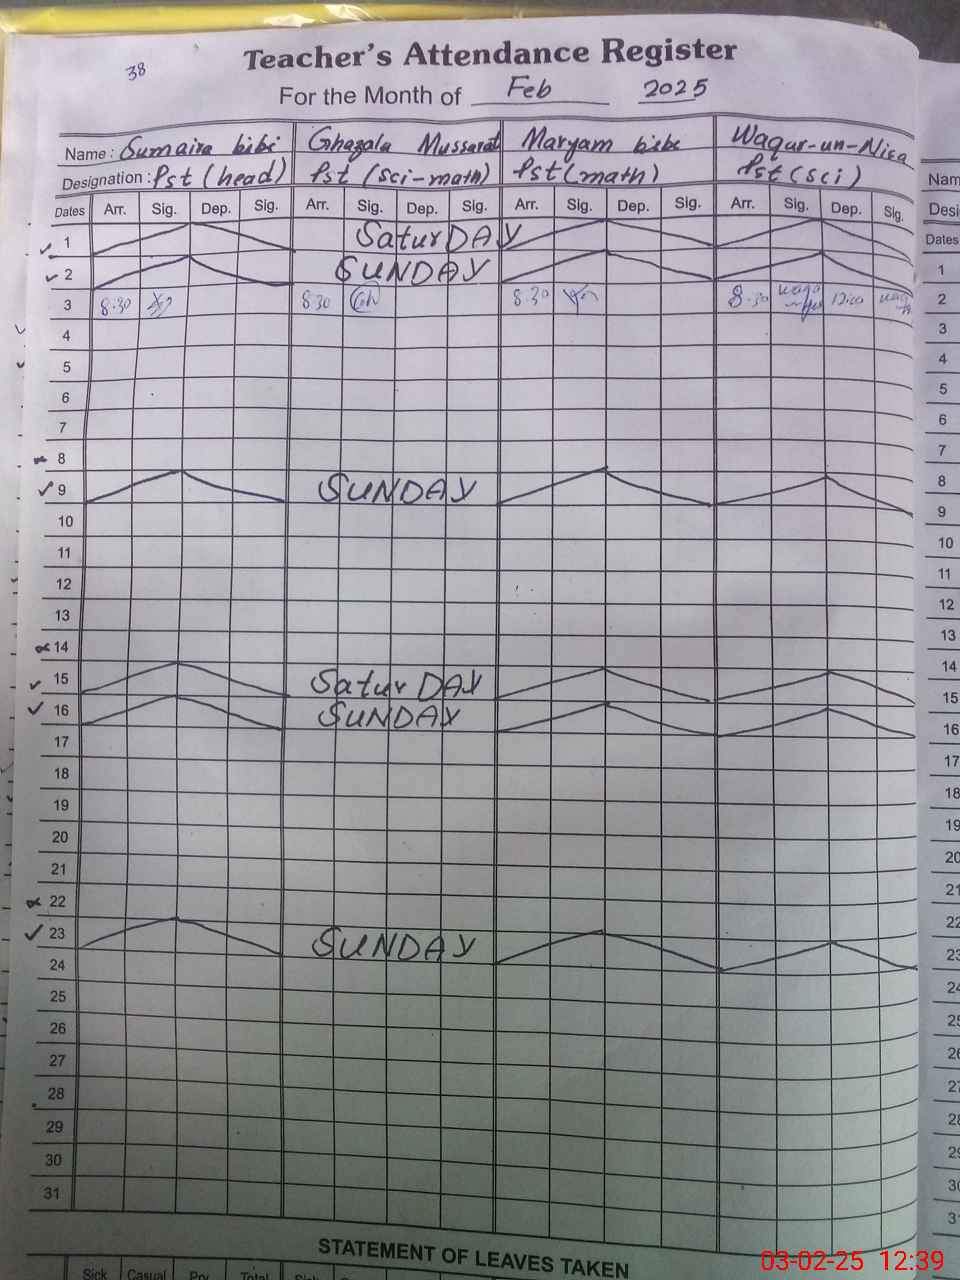 38
Teacher's Attendance Register
For the Month of Feb 2025
Name : Sumaira bibi Ghazala Mussarat Maryam bibi Waqur-un-Nisa
Designation : Pst (head) Pst (sci-math) Pst (math) Pst (sci)
Dates Arr. Sig. Dep. Sig. Arr. Sig. Dep. Sig. Arr. Sig. Dep. Sig. Arr. Sig. Dep. Sig.
1 SaturDAY
2 SUNDAY
3 8:30 8:30 8:30 8:30 12:00
4
5
6
7
8
9 SUNDAY
10
11
12
13
14
15 SaturDAY
16 SUNDAY
17
18
19
20
21
22
23 SUNDAY
24
25
26
27
28
29
30
31
STATEMENT OF LEAVES TAKEN
Sick Casual Total
Nam
Desi
Dates
1
2
3
4
5
6
7
8
9
10
11
12
13
14
15
16
17
18
19
20
21
22
23
24
25
26
27
28
29
30
31
03-02-25 12:39